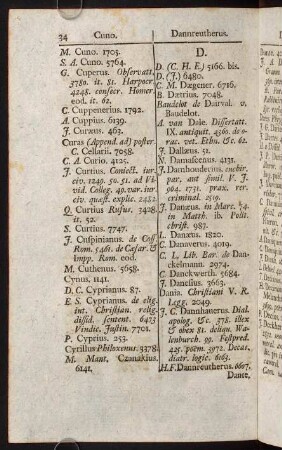 34 Cuno. Dannreutherus.
M. Cuno. 1705.
S. A. Cuno. 5764.
G. Cuperus. Observatt.
3780. it. 81. Harpocr.
4248. consecr. Homer.
eod. it. 62.
C. Cuppenerius. 1792.
A. Cuppius. 6139.
J. Curæus. 463.
Curas (Append. ad) poster.
C. Cellarii. 7058.
C. A. Curio. 4125.
J. Curtius. Coniect. iur.
civ. 1249. 50. 51. ad Vi
vid. Colleg. 49. var. iur.
civ. quæst. explic. 2482
Q. Curtius Rufus. 3428.
it. 52.
S. Curtius. 7747.
J. Cuspinianus. de Coss
Rom. 5461. de Cæsar. &
Impp. Rom. eod.
M. Cuthenus. 5658.
Cynus. 1141.
D. C. Cyprianus. 87.
E. S. Cyprianus. de elig.
int. Christian. relig.
dissid. sentent. 6423
Vindic. Justin. 7701.
P. Cyprius. 253.
Cyrillus Philoxenus. 3378.
M. Mant. Czanakius.
6141.
D.
D. (C. H. E.) 5166. bis.
D. (J.) 6480.
C. M. Dægener. 6716.
B. Dætrius. 7048.
Baudelot de Dairval. v.
Baudelot.
A. van Dale. Dissertatt.
IX. antiquit. 4560. de o-
rac. vet. Ethn. &c. 62.
J. Dallæus. 51.
N. Damascenus. 4131.
J. Damhouderius. enchir.
par. aut simil. V. J.
964. 1731. prax. rer.
criminal. 2519.
J. Danæus. in Marc. 54.
in Matth. ib. Polit.
christ. 987.
L. Danæus. 1820.
C. Danaverus. 4019.
C. L. Lib. Bar. de Danckelmann. 2974.
C. Danckwerth. 5684.
J. Danesius. 3663.
Dania. Christiani V. R.
Legg. 2049.
J. C. Dannhauerus. Dialapolog. &c. 378. illex
& obex 81. deliqu. Walenburch. 99. Festpred.
425. poëm. 3972. Decas.
diatr. logic. 6163.
H. F. Dannreutherus. 6607.
Dante,